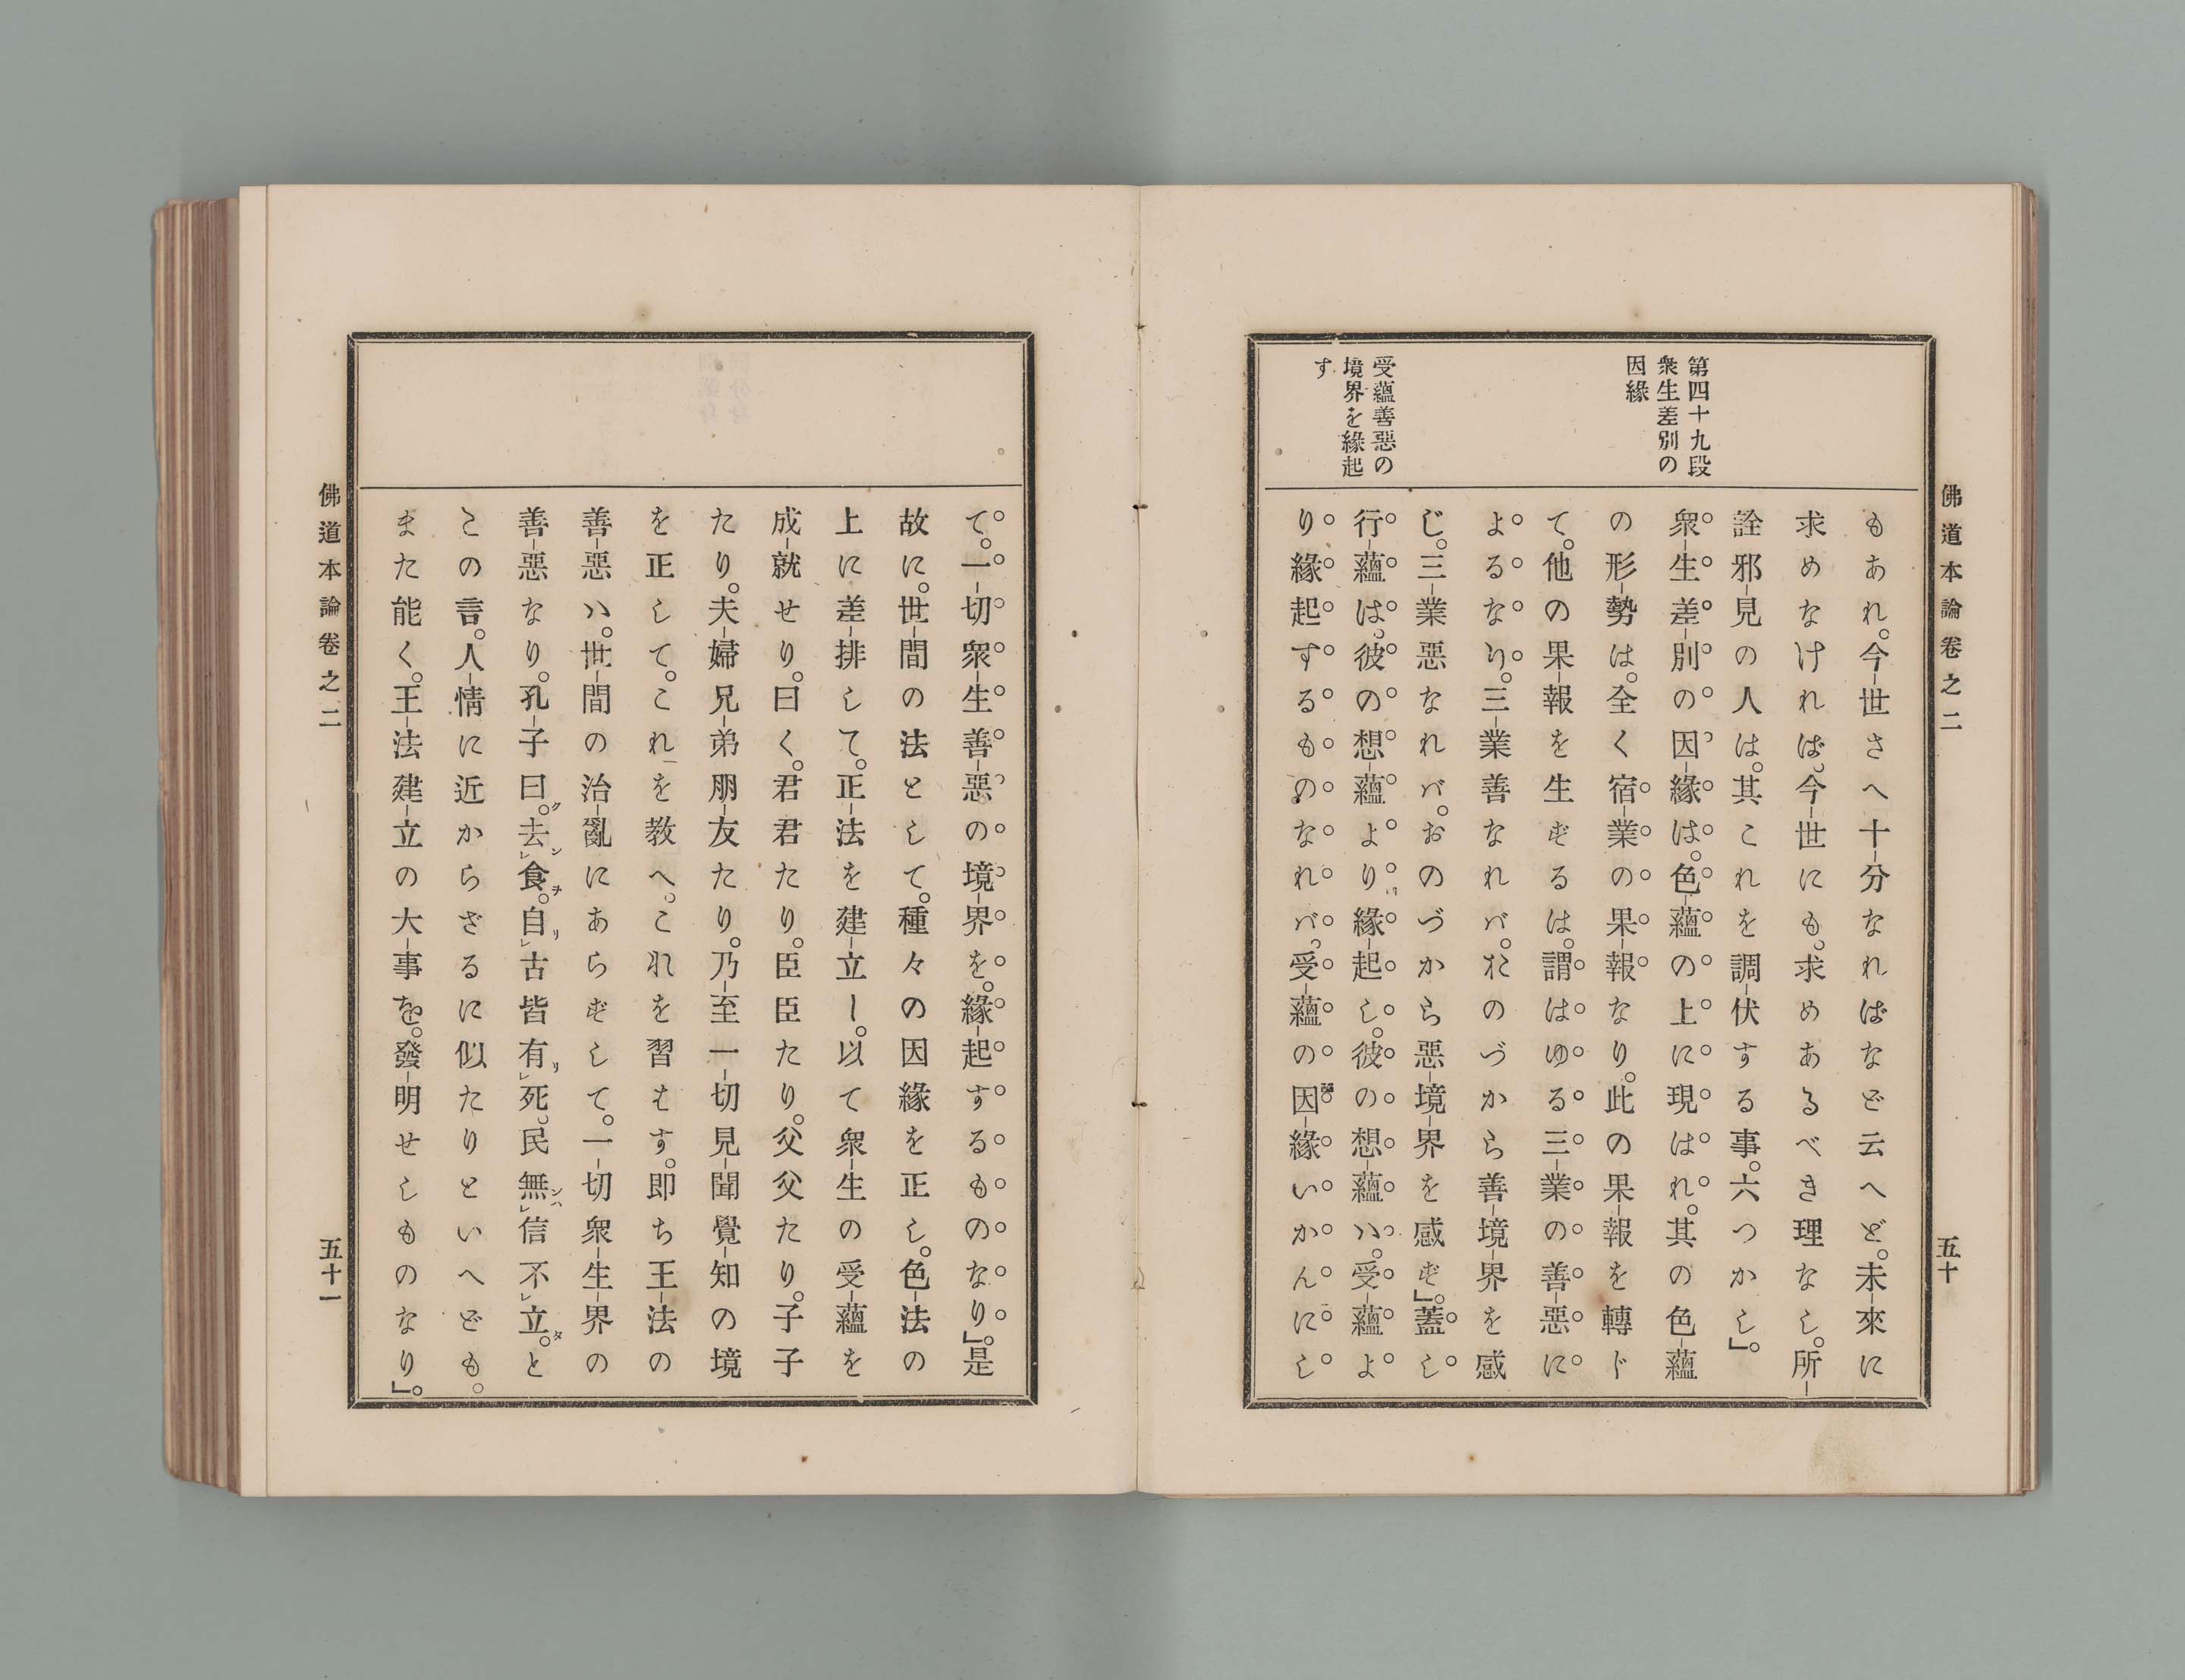 佛道本論卷之二
五十
第四十九段
衆生差別の
因緣
受蘊善惡の
境界を緣起
す
もあれ。今世さへ十分なればなど云へど。未來に
求めなければ。今世にも。求めあるべき理なし。所
詮邪見の人は。其これを調伏する事。六つかし」。
衆生差別の因緣は。色蘊の上に現はれ。其の色蘊
の形勢は。全く宿業の果報なり。此の果報を轉ド
て。他の果報を生ずるは。謂はゆる三業の善惡に
よるなり。三業善なれバ。おのづから善境界を感
じ。三業惡なれバ。おのづから惡境界を感ず」。蓋し
行蘊は。彼の想蘊より緣起し。彼の想蘊ハ。受蘊よ
り緣起するものなれバ。受蘊の因緣いかんにし
て。一切衆生善惡の境界を。緣起するものなり」。是
故に。世間の法として。種々の因緣を正し。色法の
上に差排して。正法を建立し。以て衆生の受蘊を
成就せり。曰く。君君たり。臣臣たり。父父たり。子子
たり。夫婦兄弟朋友たり。乃至一切見聞覺知の境
を正して。これを教へ。これを習はす。即ち王法の
善惡ハ。世間の治亂にあらずして。一切衆生界の
善惡なり。孔子曰。去レ食。自レ古皆有レ死。民無レ信不レ立。と
この言。人情に近からざるに似たりといへども。
また能く。王法建立の大事を。發明せしものなり」。
佛道本論卷之二
五十一